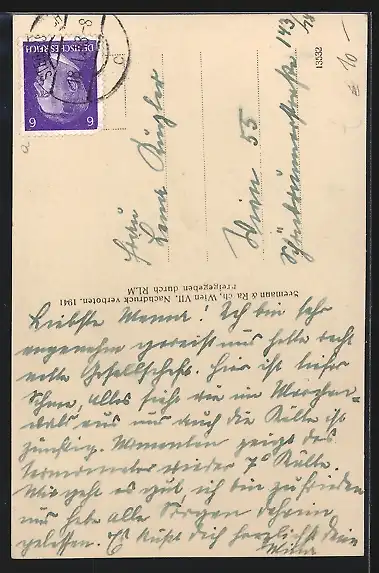 DEUTSCHES REICH
6 6
13532
10 -
Frau
Lena Kugler
Wien 55
Schönbrunnerstraße 143
Seemann & Ra ch, Wien VII. Nachdruck verboten. 1941
Freigegeben durch RLM
Liebste Mama! Ich bin sehr
angenehm gereist und hatte recht
nette Gesellschaft. Hier ist tiefer
Schnee, alles sieht wie im Märchen-
wald aus und auch die Kälte ist
zünftig. Momentan zeigt das
Termometer wieder 7° Kälte.
Mir geht es gut, ich bin zufrieden
und habe alle Sorgen daheim
gelassen. Es küßt Dich herzlichst Deine